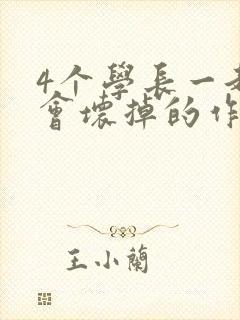 4个學長一
會壞掉的作
王小蘭